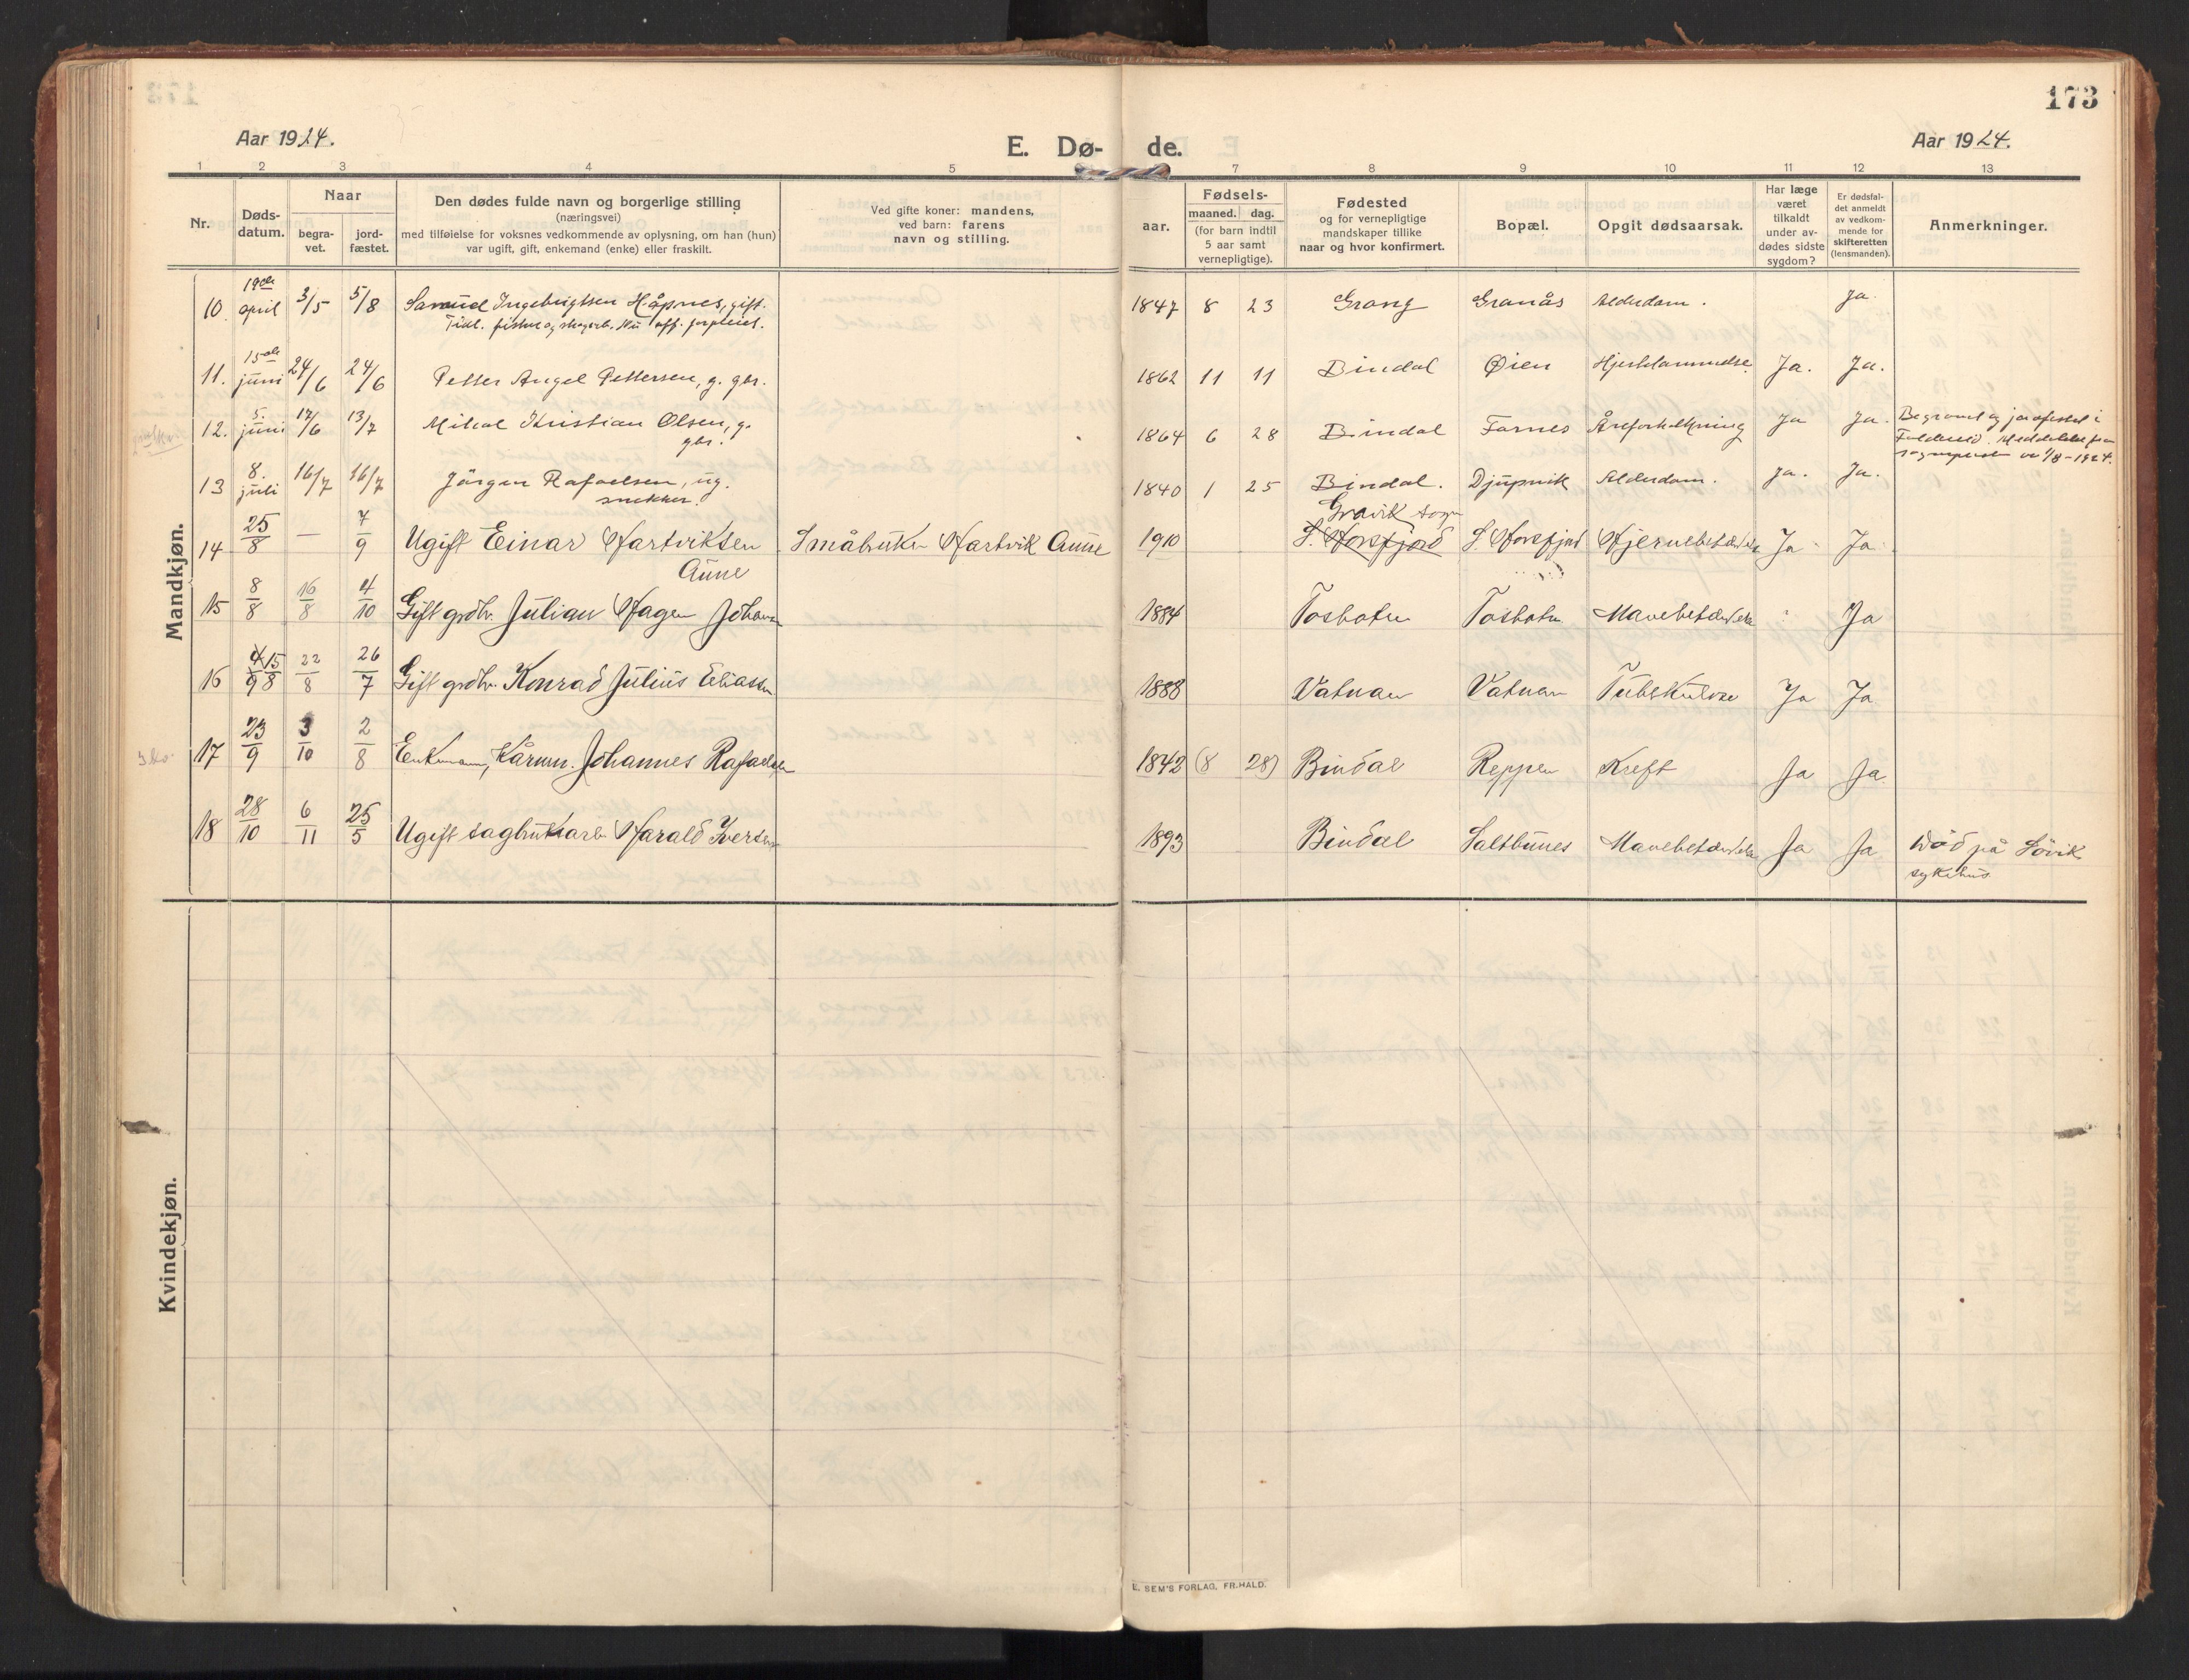 173
Aar 1924.
E. Dø-
de.
Aar 1924.
1 2 3 4 5 7 8 9 10 11 12 13
Nr.
Døds-
datum.
Naar
begra-
vet.
jord-
fæstet.
Den dødes fulde navn og borgerlige stilling
(næringsvei)
med tilføielse for voksnes vedkommende av oplysning, om han (hun)
var ugift, gift, enkemand (enke) eller fraskilt.
Ved gifte koner: mandens,
ved barn: farens
navn og stilling.
aar.
Fødsels-
maaned. dag.
(for barn indtil
5 aar samt
vernepligtige).
Fødested
og for vernepligtige
mandskaper tillike
naar og hvor konfirmert.
Bopæl.
Opgit dødsaarsak.
Har læge
været
tilkaldt
under av-
dødes sidste
sygdom?
Er dødsfal-
det anmeldt
av vedkom-
mende for
skifteretten
(lensmanden).
Anmerkninger.
Mandkjøn.
10. 19de april 3/5 5/8 Samuel Ingebrigtsen Håpnes, gift. 1847 8 23 Grang Granås Alderdom. Ja.
Tidl. fisker og skogarb. Nu off. forpleiet.
11. 15de juni 24/6 24/6 Petter Angel Pettersen, g. gbr. 1862 11 11 Bindal Øien Hjertelammelse Ja. Ja.
12. 5. juni 17/6 13/7 Mikal Kristian Olsen, g. 1864 6 28 Bindal Farnes Åreforkalkning Ja Ja. Begravet og jordfestet i
gbr.
Foldereid. Meddelelse fra
sogneprest 1/8-1924.
13 8. juli 16/7 16/7 Jörgen Rafaelsen, ug. 1840 1 25 Bindal. Djupvik Alderdom. Ja. Ja.
snekker.
Gravik sogn
14 25/8 — 7/9 Ugift Einar Hartviksen Småbruker Hartvik Aune 1910 S. Horsfjord S. Horsfjord Hjernebetændelse Ja Ja
Aune
15 8/8 16/8 4/10 Gift grdbr. Julian Hagen Johansen 1884 Tosbotn Tosbotn Mavebetændelse Ja
16 4/9 15/8 22/8 26/7 Gift grdbr. Konrad Julius Eliassen 1888 Vatnan Vatnan Tuberkulose Ja Ja
17 23/9 3/10 2/8 Enkemann, Kårm. Johannes Rafaelsen 1842 (8 28) Bindal Reppen Kreft Ja Ja
18 28/10 6/11 25/5 Ugift sagbrukarb. Harald Iversen 1893 Bindal Saltbunes Mavebetændelse Ja Ja Död på Sövik
sykehus.
Kvindekjøn.
E. SEM'S FORLAG, FR.HALD.